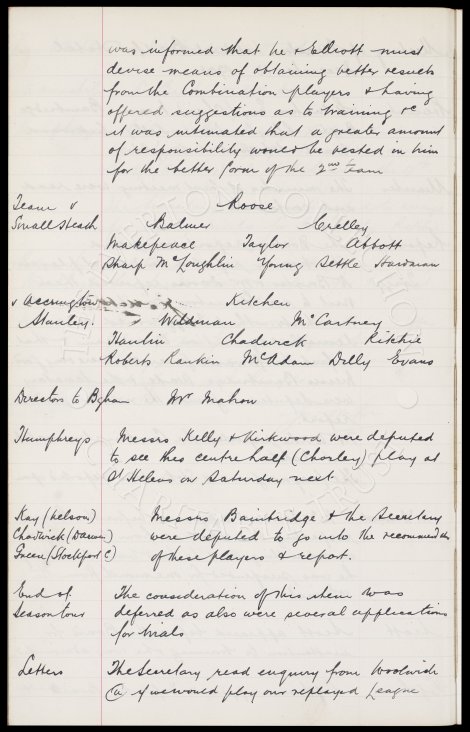 was informed that he & Elliott must
devise means of obtaining better results
from the Combination players & having
offered suggestions as to training &c
it was intimated that a greater amount
of responsibility would be vested in him
for the better form of the 2nd team
Team v Roose
Small Heath Balmer Crelley
Makepeace Taylor Abbott
Sharp McLoughlin Young Settle Hardman
v Accrington Kitchen
Stanley. Wildman McCartney
Hanlin Chadwick Ritchie
Roberts Rankin McAdam Dilly Evans
Directors to Bgham Mr Mahon
Humphreys Messrs Kelly & Kirkwood were deputed
to see this centre half (Chorley) play at
St Helens on Saturday next.
Kay (Nelson) Messrs Bainbridge & the Secretary
Chadwick (Darwen) were deputed to go into the recommdns
Green (Stockport C) of these players & report.
End of The consideration of this item was
Season tour deferred as also were several applications
for trials
Letters The Secretary read enquiry from Woolwich
(a) if we would play our replayed League